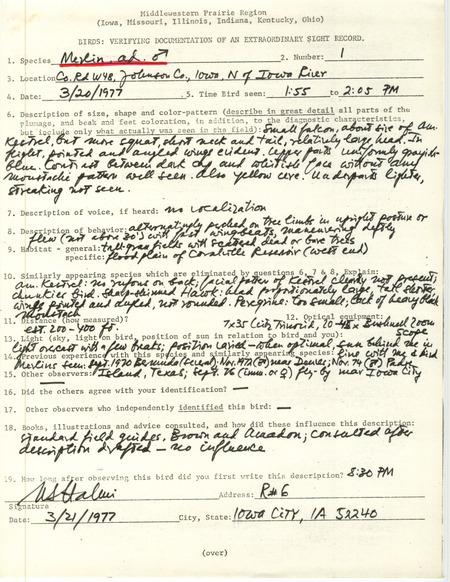 Middlewestern Prairie Region
(Iowa, Missouri, Illinois, Indiana, Kentucky, Ohio)
BIRDS: VERIFYING DOCUMENTATION OF AN EXTRAORDINARY SIGHT RECORD.
1. Species Merlin, ad. ♂ 2. Number: 1
3. Location Co. Rd W48, Johnson Co., Iowa, N of Iowa River
4. Date: 3/20/1977 5. Time Bird seen: 1:55 to 2:05 PM
6. Description of size, shape and color-pattern (describe in great detail all parts of the
plumage, and beak and feet coloration, in addition, to the diagnostic characteristics,
but include only what actually was seen in the field): Small falcon, about size of Am.
Kestrel, but more squat, short neck and tail, relatively large head. In
flight, pointed and angled wings evident. Upper parts uniformly grayish
blue. Contrast between dark cap and whitish face without any
moustache pattern well seen. Also yellow cere. Underparts lighter,
streaking not seen.
7. Description of voice, if heard: no vocalization
8. Description of behavior: alternatingly perched on tree limbs in upright posture or
flew (not above 30') with fast wingbeats, maneuvering deftly
9. Habitat - general: tall-grass fields with scattered dead or bare trees
specific: flood plain of Coralville Reservoir (west end)
10. Similarly appearing species which are eliminated by questions 6, 7 & 8, Explain:
Am. Kestrel: no rufous on back, facial pattern of Kestrel clearly not present,
chunkier bird. Sharp-shinned Hawk: head proportionately large, tail shorter
wings pointed and angled, not rounded. Peregrine: too small, lack of heavy black
moustach
11. Distance (how measured)? 12. Optical equipment:
est. 200-400 ft. 7x35 Binoc., 20-45x Bushnell zoom scope
13. Light (sky, light on bird, position of sun in relation to bird and you):
light overcast with few breaks; position varied - when optimal, sun behind me in line with me & bird
14. Previous experience with this species and similarly appearing species:
Merlins seen: Sept. 1970 Bermuda
15. Other observers: Island, Texas; Sept. 76 (imm. or ♀) fly-by near Iowa City
16. Did the others agree with your identification? —
17. Other observers who independently identified this bird: —
18. Books, illustrations and advice consulted, and how did these influence this description:
standard field guides, Brown and Amadon; consulted after
description drafted — no influence
19. How long after observing this bird did you first write this description? 8:30 PM
Signature Address: R#6
Date: 3/21/1977 City, State: Iowa City, IA 52240
(over)